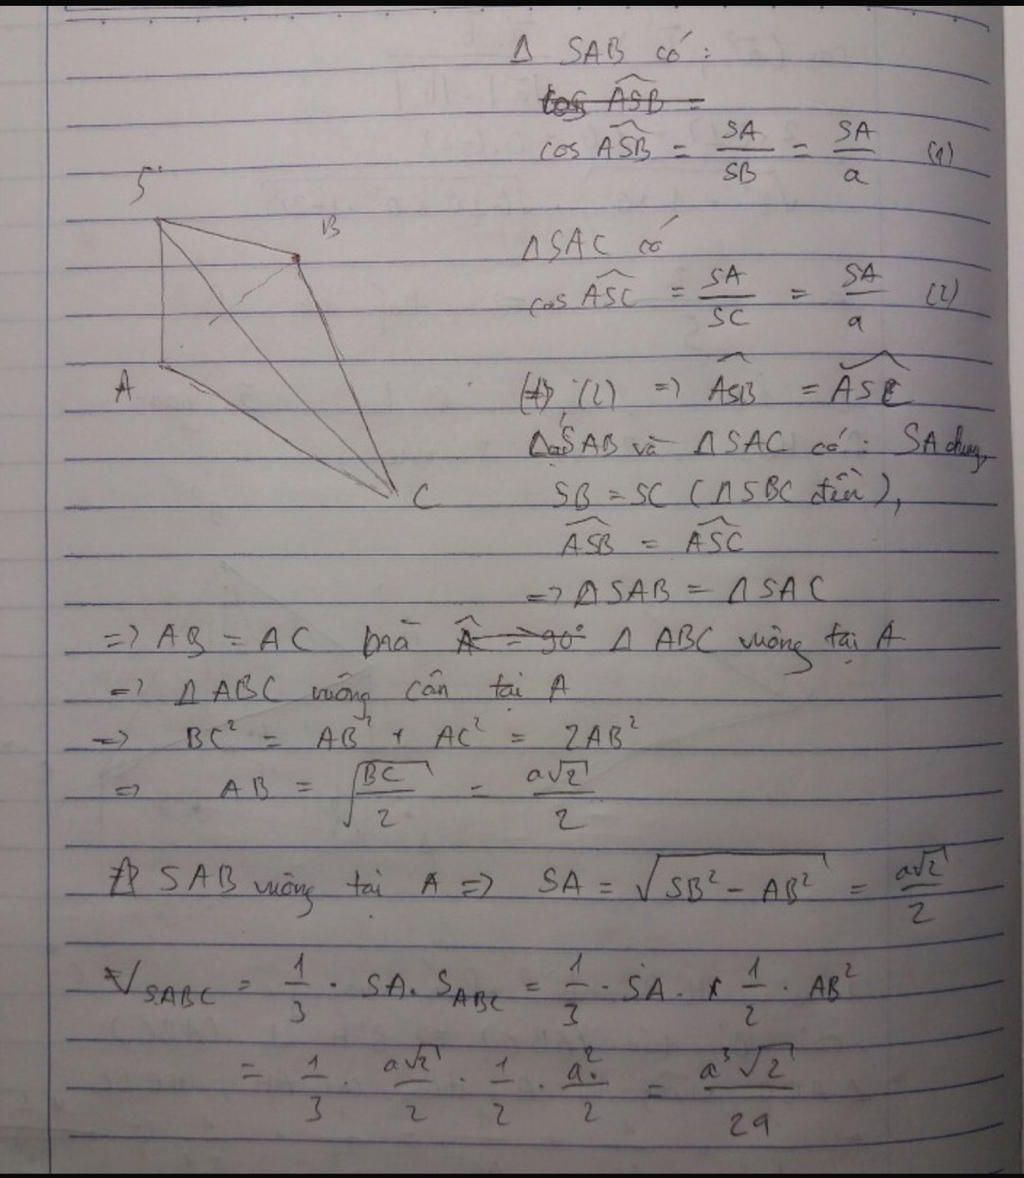 Δ SAB có:
cos ASB =
cos ASB = SA/SB = SA/a (1)
S
B
A
C
ΔSAC có
cos ASC = SA/SC = SA/a (2)
(1), (2) => ASB = ASC
ΔSAB và ΔSAC có: SA chung,
SB = SC (ΔSBC đều),
ASB = ASC
=> ΔSAB = ΔSAC
=> AB = AC mà A = 90° Δ ABC vuông tại A
=> Δ ABC vuông cân tại A
=> BC² = AB² + AC² = 2AB²
=> AB = √(BC/2) = a√2/2
SAB vuông tại A => SA = √(SB² - AB²) = a√2/2
V_SABC = 1/3 . SA. S_ABC = 1/3 . SA. 1/2 . AB²
= 1/3 . a√2/2 . 1/2 . a²/2 = a³√2/24